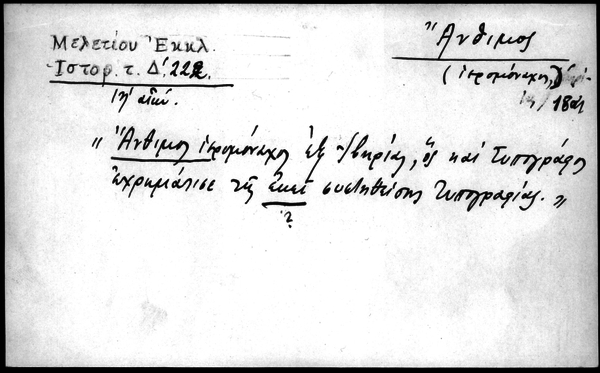 Μελετίου Ἐκκλ.
Ἱστορ. τ. Δ'. 222.
ιη' αἰών.
Ἄνθιμος
(ἱερομόναχος,)
18ος
"Ἄνθιμος ἱερομόναχος ἐξ Ἰβηρίας, ὃς καὶ τυπογράφος
ἐχρημάτισε τῆς ἐκεῖ συστηθείσης τυπογραφίας."
?